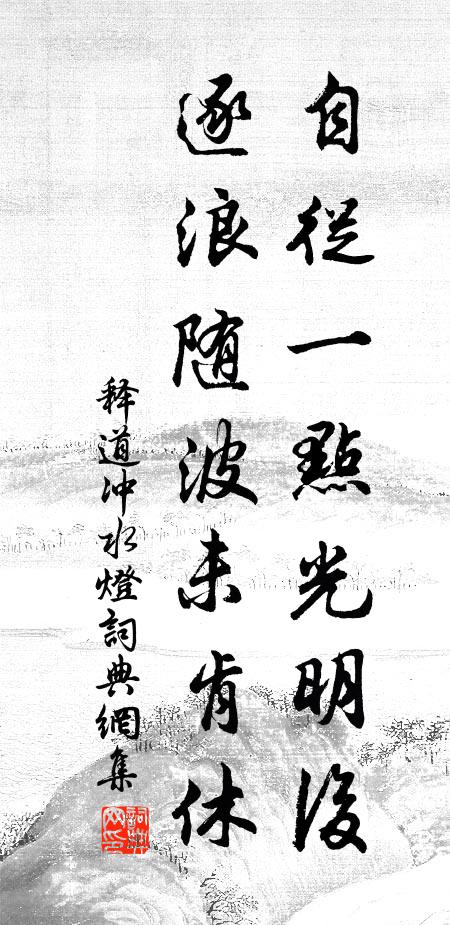 自從一點光明後
逐浪随波未肯休
释道冲水燈詞典網集